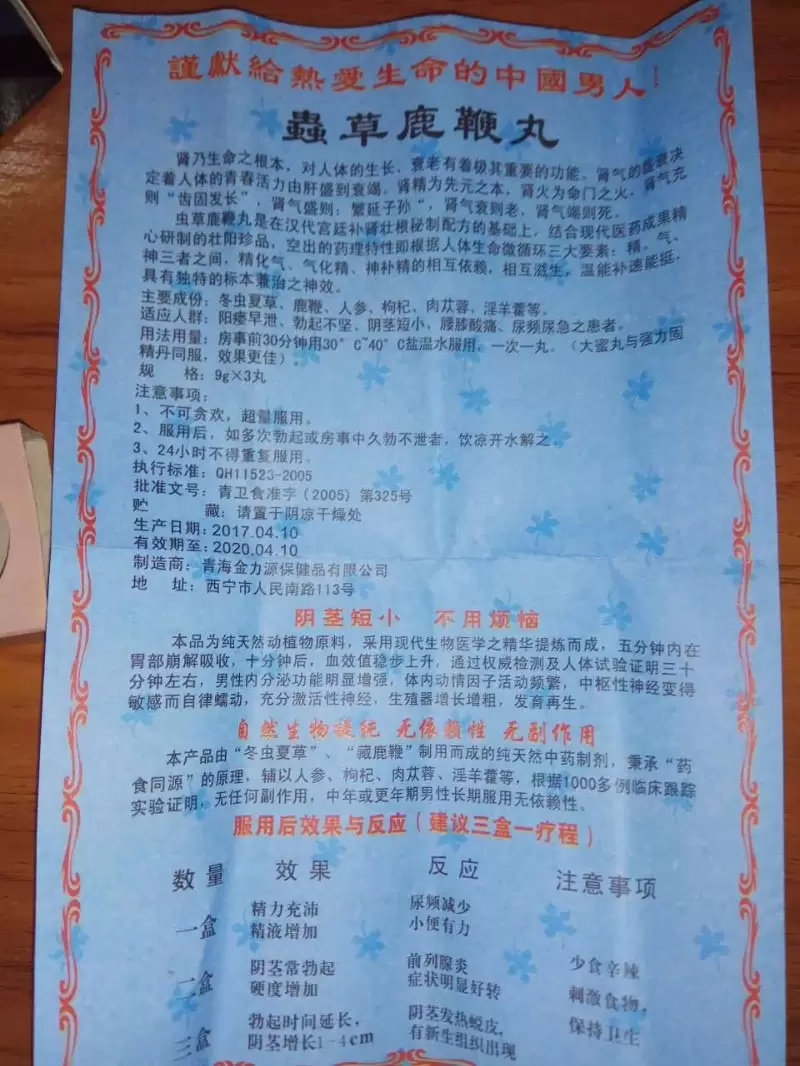 謹獻給熱愛生命的中國男人!
蟲草鹿鞭丸
肾乃生命之根本，对人体的生长、衰老有着极其重要的功能。肾气的盛衰决
定着人体的青春活力由肝盛到衰竭。肾精为先元之本，肾火为命门之火，肾气充
则“齿固发长”，肾气盛则：繁延子孙”，肾气衰则老，肾气竭则死。
虫草鹿鞭丸是在汉代宫廷补肾壮根秘制配方的基础上，结合现代医药成果精
心研制的壮阳珍品，空出的药理特性即根据人体生命微循环三大要素：精、气、
神三者之间，精化气、气化精、神补精的相互依赖，相互滋生，温能补速能挺，
具有独特的标本兼治之神效。
主要成份：冬虫夏草、鹿鞭、人参、枸杞、肉苁蓉、淫羊藿等。
适应人群：阳痿早泄、勃起不坚、阴茎短小、腰膝酸痛、尿频尿急之患者。
用法用量：房事前30分钟用30°C~40°C盐温水服用，一次一丸。（大蜜丸与强力固
精丹同服，效果更佳）.
规 格：9g×3丸
注意事项：
1、不可贪欢，超量服用。
2、服用后，如多次勃起或房事中久勃不泄者，饮凉开水解之。
3、24小时不得重复服用。
执行标准：QH11523-2005
批准文号：青卫食准字（2005）第325号
贮 藏：请置于阴凉干燥处
生产日期：2017.04.10
有效期至：2020.04.10
制造商：青海金力源保健品有限公司
地 址：西宁市人民南路113号
阴茎短小 不用烦恼
本品为纯天然动植物原料，采用现代生物医学之精华提炼而成，五分钟内在
胃部崩解吸收，十分钟后，血效值稳步上升，通过权威检测及人体试验证明三十
分钟左右，男性内分泌功能明显增强，体内动情因子活动频繁，中枢性神经变得
敏感而自律蠕动，充分激活性神经，生殖器增长增粗，发育再生。
自然生物提纯 无依赖性 无副作用
本产品由“冬虫夏草”、“藏鹿鞭”制用而成的纯天然中药制剂，秉承“药
食同源”的原理，辅以人参、枸杞、肉苁蓉、淫羊藿等，根据1000多例临床跟踪
实验证明，无任何副作用，中年或更年期男性长期服用无依赖性。
服用后效果与反应（建议三盒一疗程）
数量 效果 反应 注意事项
一盒 精力充沛 尿频减少
精液增加 小便有力
二盒 阴茎常勃起 前列腺炎 少食辛辣
硬度增加 症状明显好转 刺激食物，
三盒 勃起时间延长， 阴茎发热蜕皮， 保持卫生
阴茎增长1-4cm 有新生组织出现